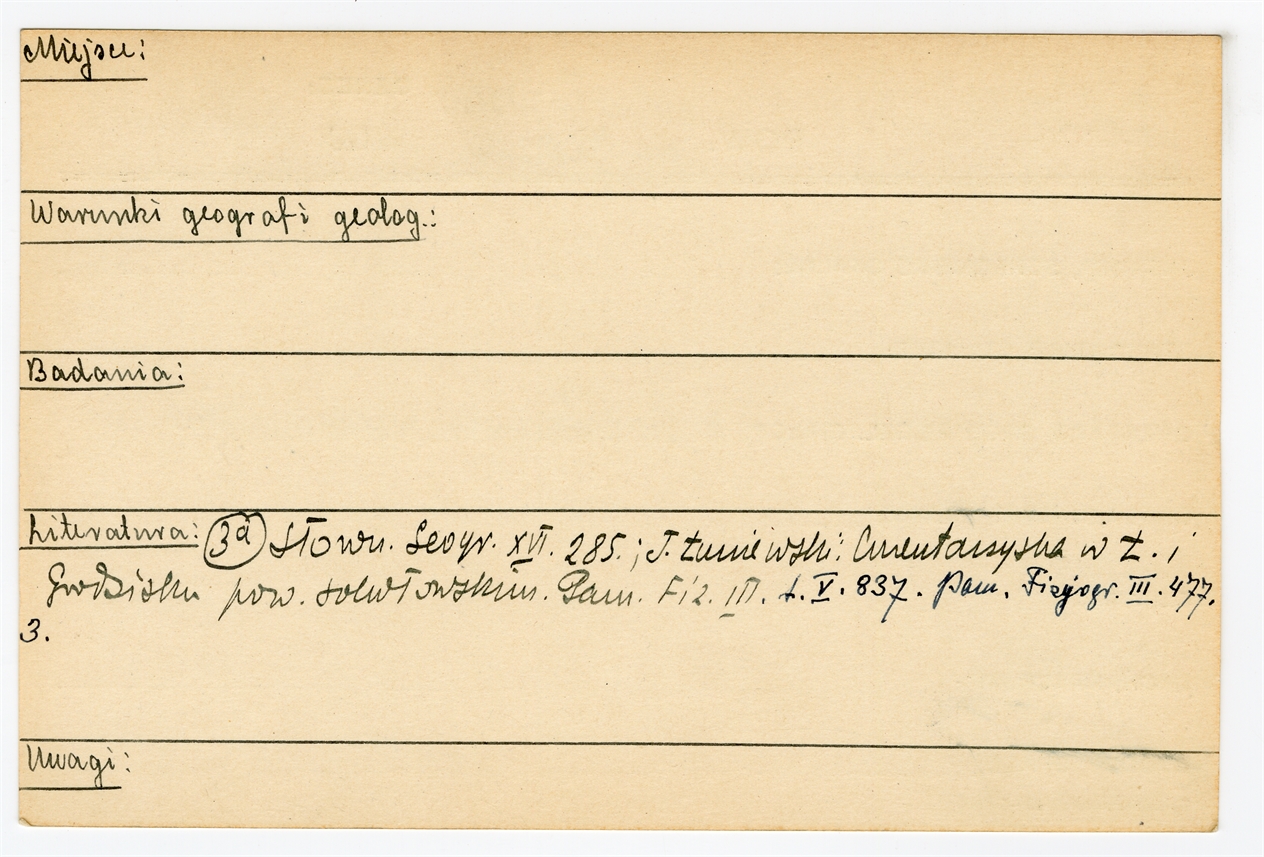 Miejsce:
Warunki geograf i geolog.:
Badania:
Literatura: (3a) Słown. Geogr. XVI. 285.; T. Łuniewski: Cmentarzyska w Ł. i
Grodzisku pow. sokołowskim. Pam. Fiz. III. t. V. 837. Pam. Fizyogr. III. 477.
3.
Uwagi: